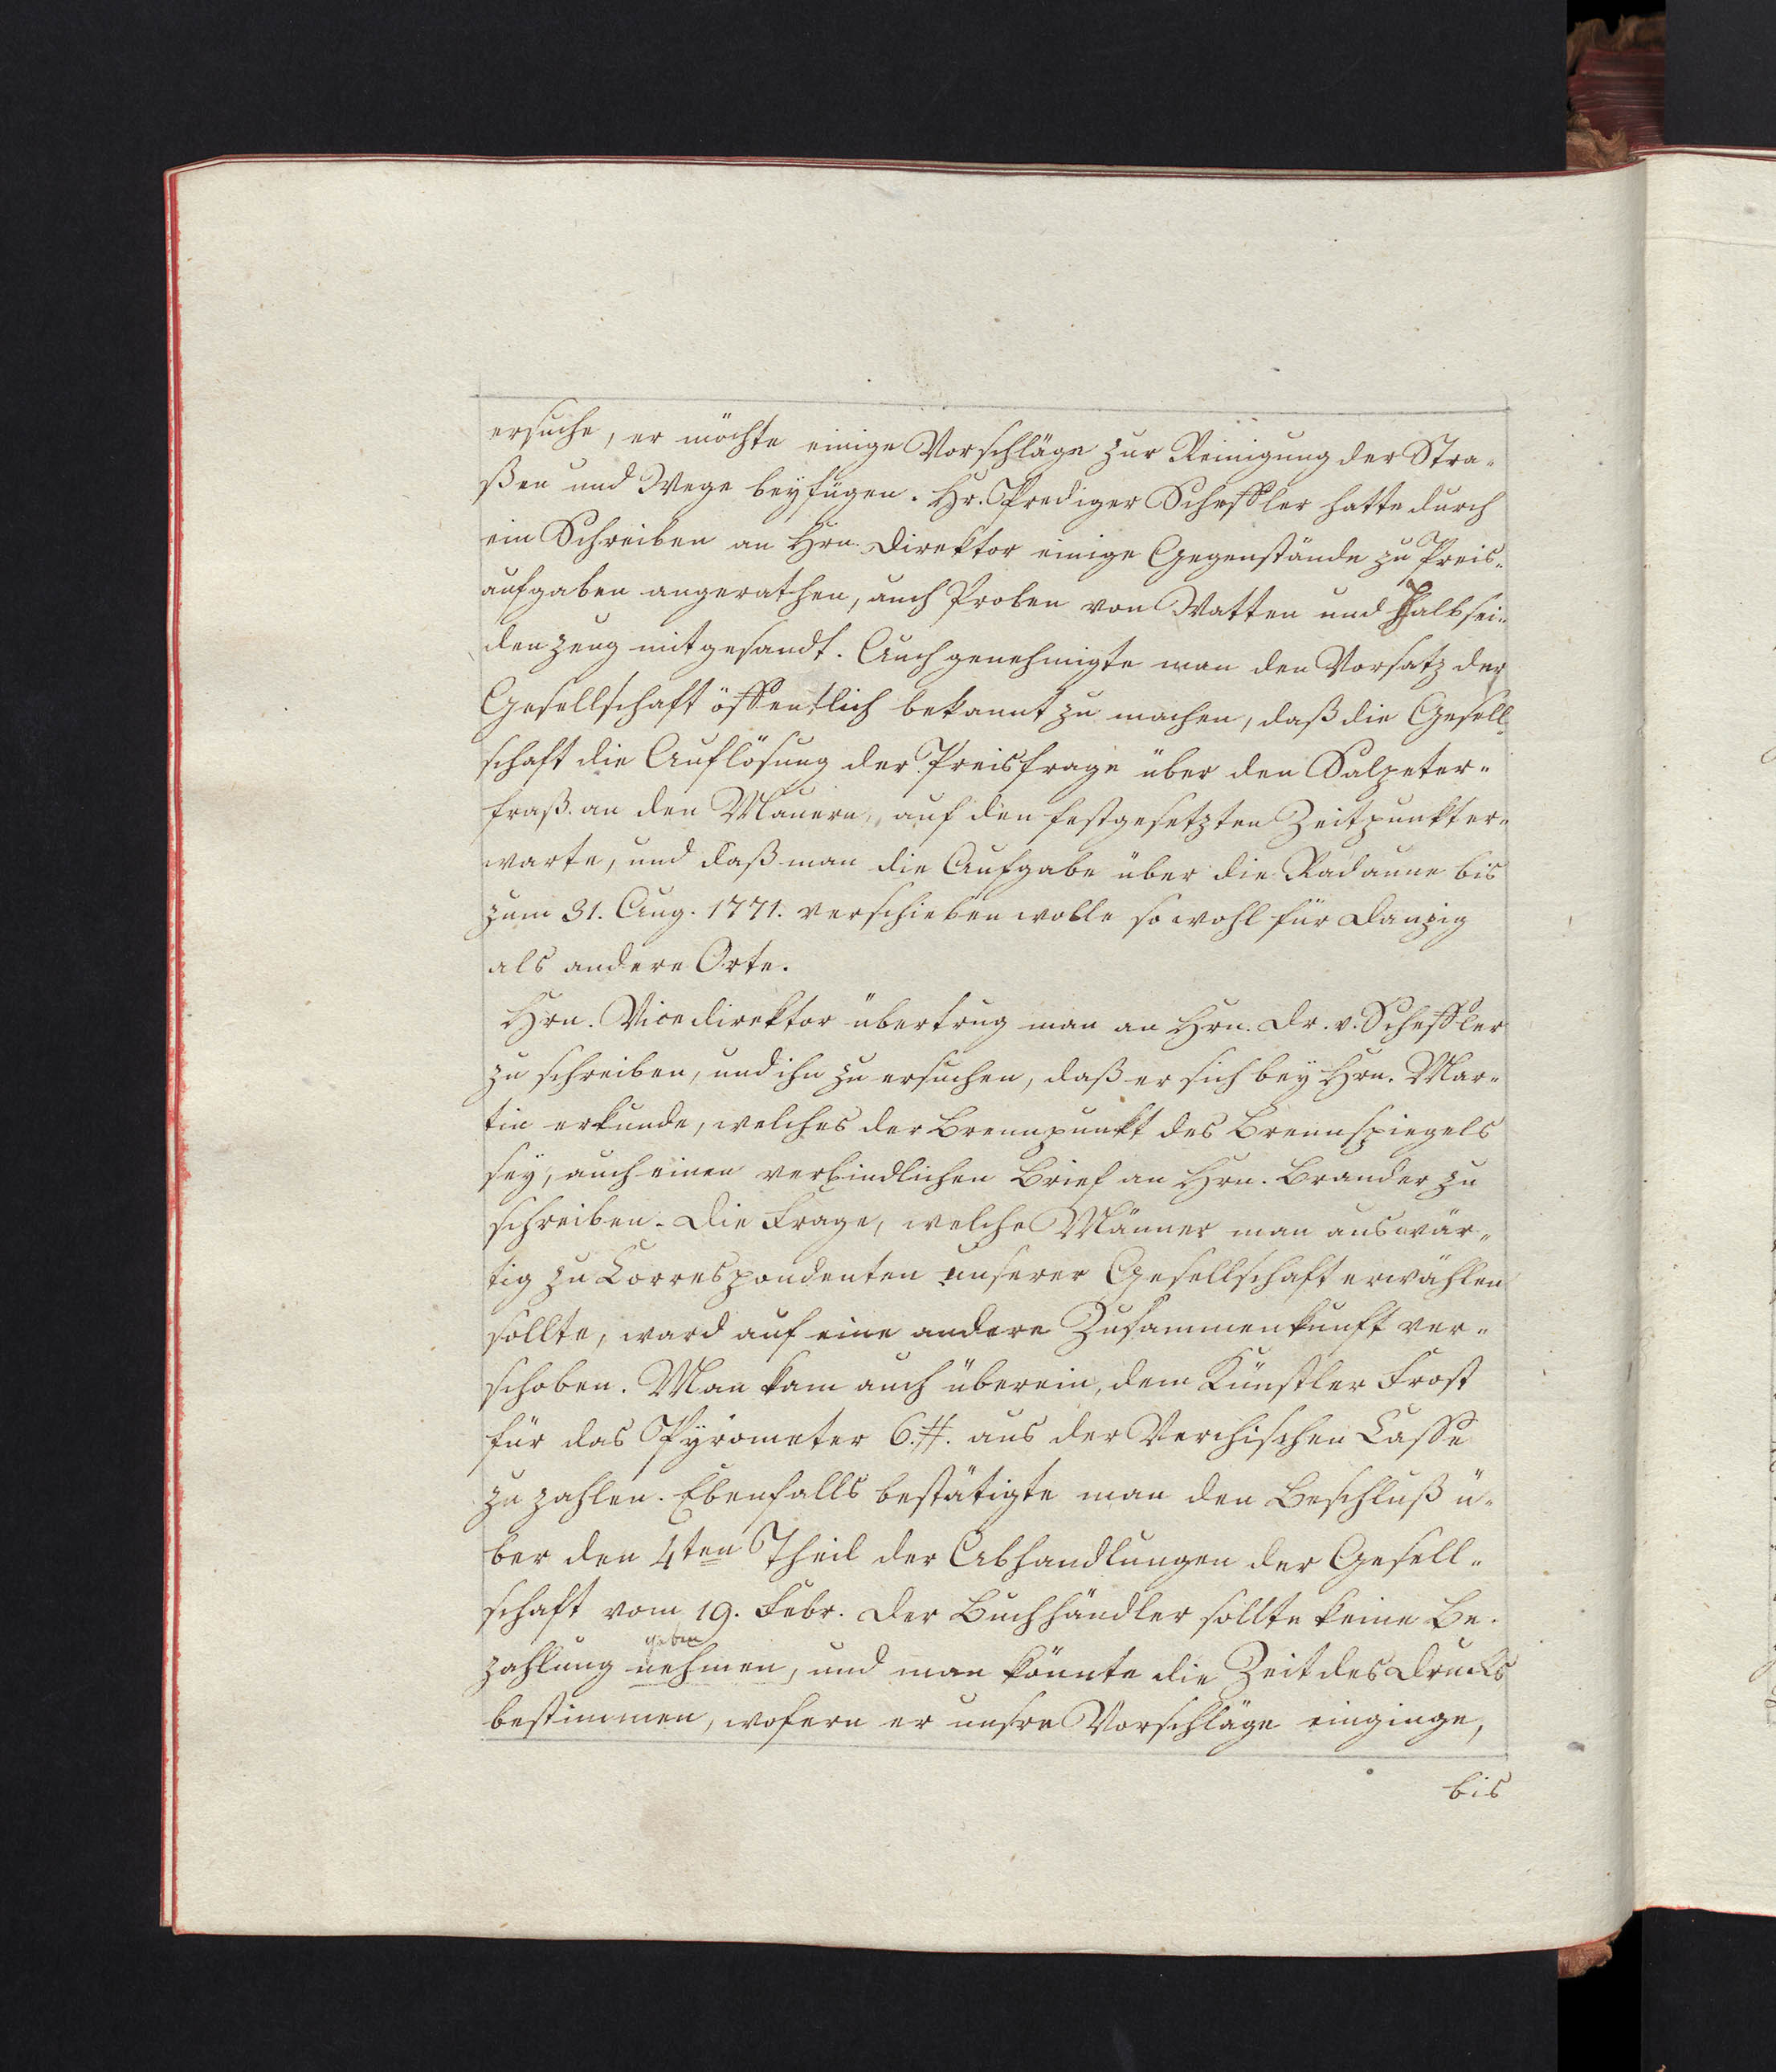 ersuche, er möchte einige Vorschläge zur Reinigung der Stra-
ßen und Wege beyfügen. Hr. Prediger Scheffler hatte durch
ein Schreiben an Hrn. Direktor einige Gegenstände zu Preis-
aufgaben angerathen, auch Proben von Watten und Halbsei-
denzeug mitgesandt. Auch genehmigte man den Vorsatz der
Gesellschaft öffentlich bekannt zu machen, daß die Gesell-
schaft die Auflösung der Preisfrage über den Salpeter-
fraß an den Mauern, auf den festgesetzten Zeitpunkt er-
warte, und daß man die Aufgabe über die Radaune bis
zum 31. Aug. 1771. verschieben wolle so wohl für Danzig
als andere Orte.
Hrn. Vicedirektor übertrug man an Hrn. Dr. v. Scheffler
zu schreiben, und ihn zu ersuchen, daß er sich bey Hrn. Mar-
tin erkunde, welches der Brennpunkt des Brennspiegels
sey, auch einen verbindlichen Brief an Hrn. Brander zu
schreiben. Die Frage, welche Männer man auswär-
tig zu Correspondenten unserer Gesellschaft erwählen
sollte, ward auf eine andere Zusammenkunft ver-
schoben. Man kam auch überein, dem Künstler Frost
für das Pyrometer 6. #. aus der Verchischen Casse
zu zahlen. Ebenfalls bestätigte man den Beschluß ü-
ber den 4ten Theil der Abhandlungen der Gesell-
schaft vom 19. Febr. Der Buchhändler sollte keine Be-
geben
zahlung nehmen, und man könnte die Zeit des Drucks
bestimmen, wofern er unsre Vorschläge einginge,
bis